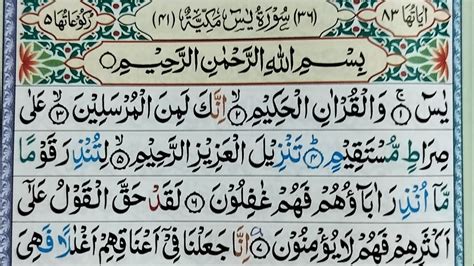 اٰيَاتُهَا ٨٣ (٣٦) سُوْرَةُ يٰسٓ مَكِّيَّةٌ (٤١) رُكُوْعَاتُهَا ٥
بِسْمِ اللّٰهِ الرَّحْمٰنِ الرَّحِيْمِ
يٰسٓ ۝١ وَالْقُرْاٰنِ الْحَكِيْمِ ۝٢ اِنَّكَ لَمِنَ الْمُرْسَلِيْنَ ۝٣ عَلٰى
صِرَاطٍ مُّسْتَقِيْمٍ ۝٤ تَنْزِيْلَ الْعَزِيْزِ الرَّحِيْمِ ۝٥ لِتُنْذِرَ قَوْمًا
مَّاۤ اُنْذِرَ اٰبَآؤُهُمْ فَهُمْ غٰفِلُوْنَ ۝٦ لَقَدْ حَقَّ الْقَوْلُ عَلٰٓى
اَكْثَرِهِمْ فَهُمْ لَا يُؤْمِنُوْنَ ۝٧ اِنَّا جَعَلْنَا فِيْٓ اَعْنَاقِهِمْ اَغْلٰلًا فَهِيَ